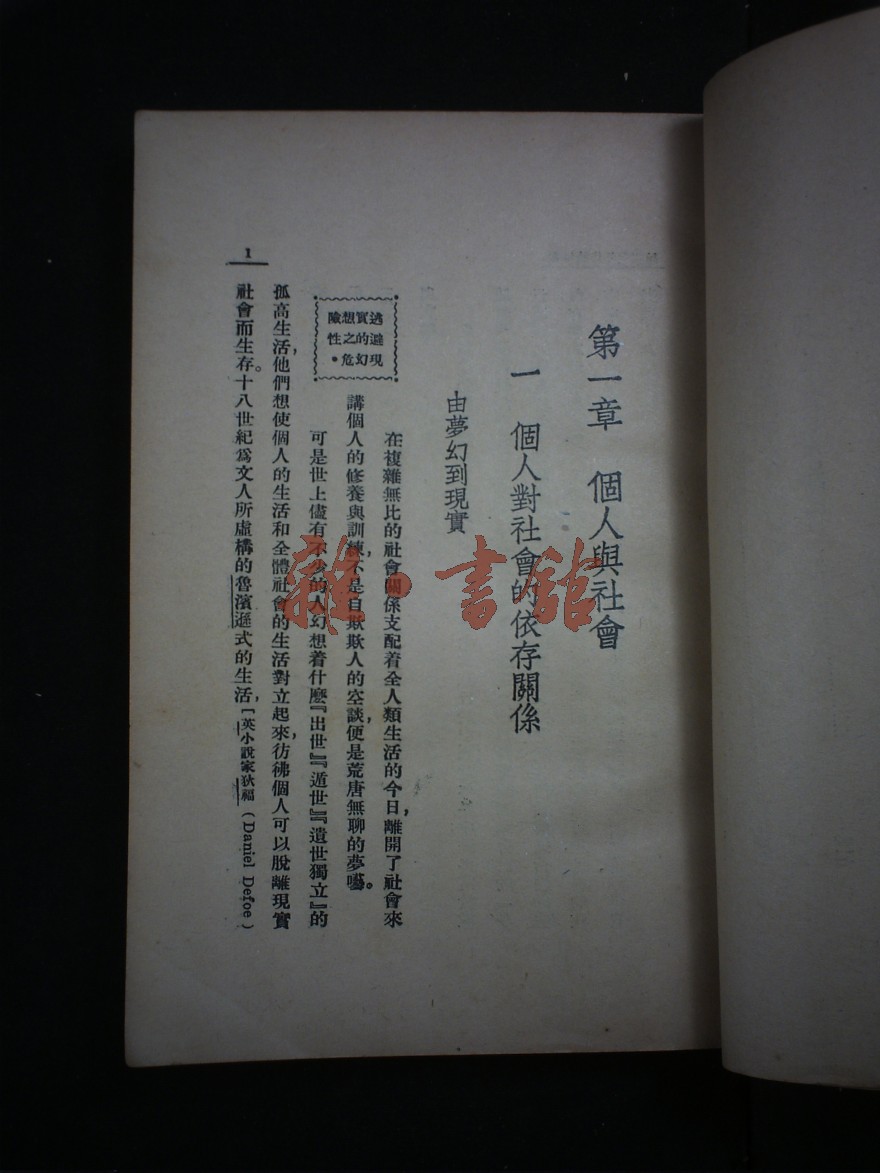 第一章　個人與社會
一　個人對社會的依存關係
由夢幻到現實
在複雜無比的社會關係支配着全人類生活的今日，離開了社會來
講個人的修養與訓練，不是自欺欺人的空談，便是荒唐無聊的夢囈。
逃避現
實的幻
想之危
險性。
可是世上儘有不少的人幻想着什麼『出世』『遁世』『遺世獨立』的
孤高生活，他們想使個人的生活和全體社會的生活對立起來，彷彿個人可以脫離現實
社會而生存。十八世紀爲文人所虛構的魯濱遜式的生活，〔英小說家狄福（Daniel Defoe）
1
雜·書館